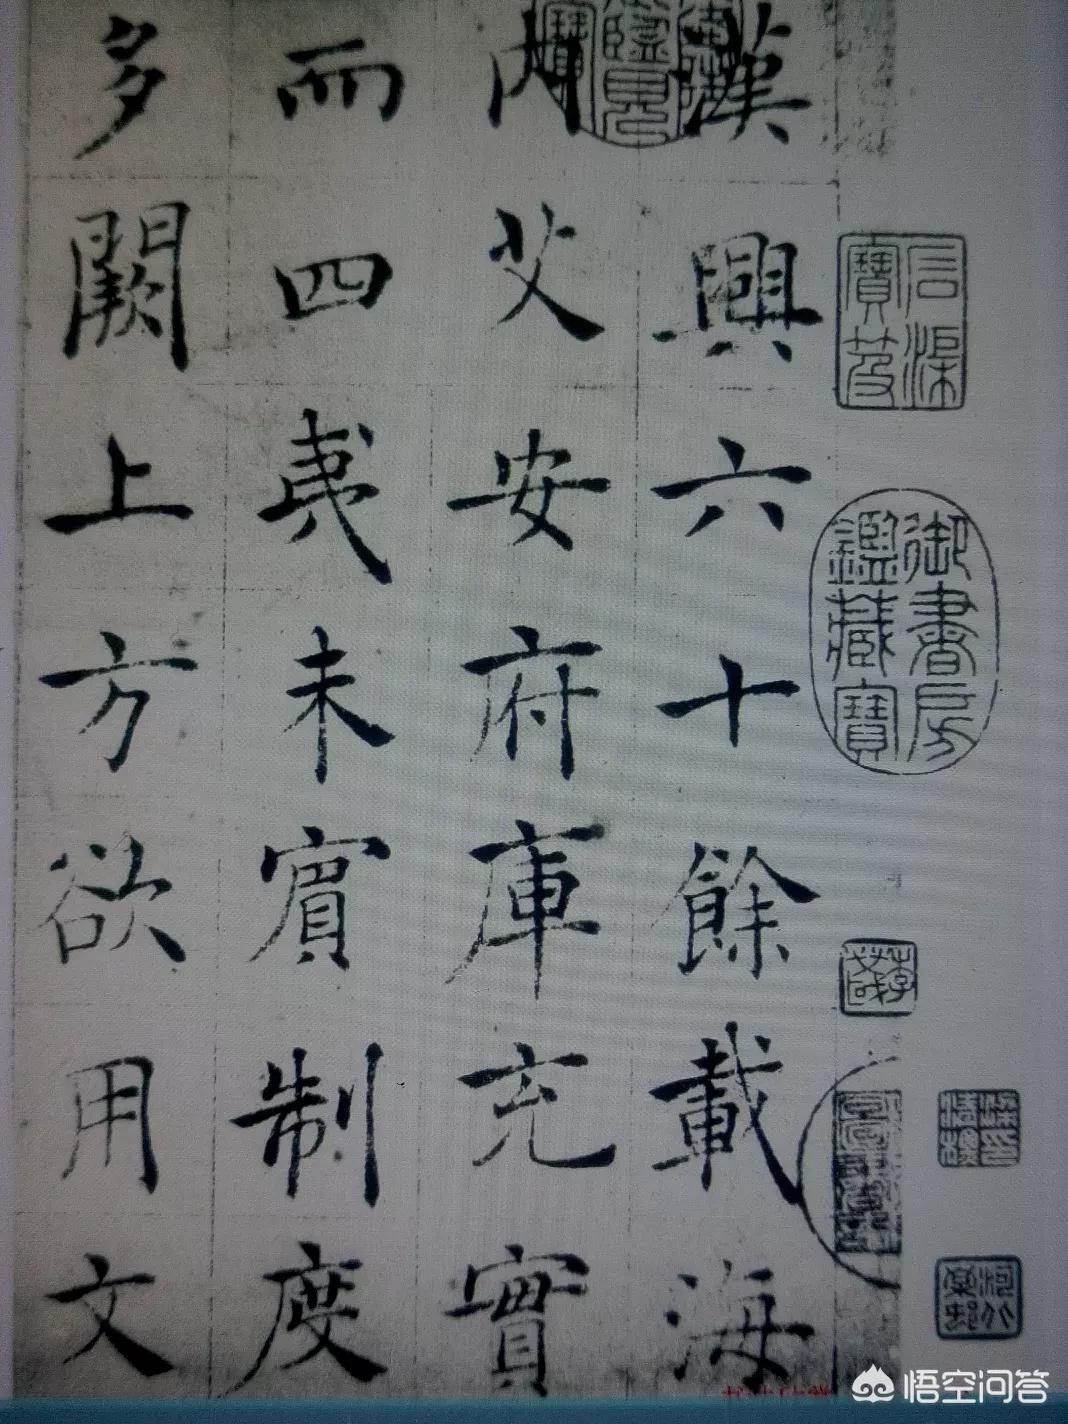 漢興六十餘載海
内艾安府庫充實
而四夷未賓制度
多闕上方欲用文
石渠寶笈
御書房鑑藏寶
悟空问答